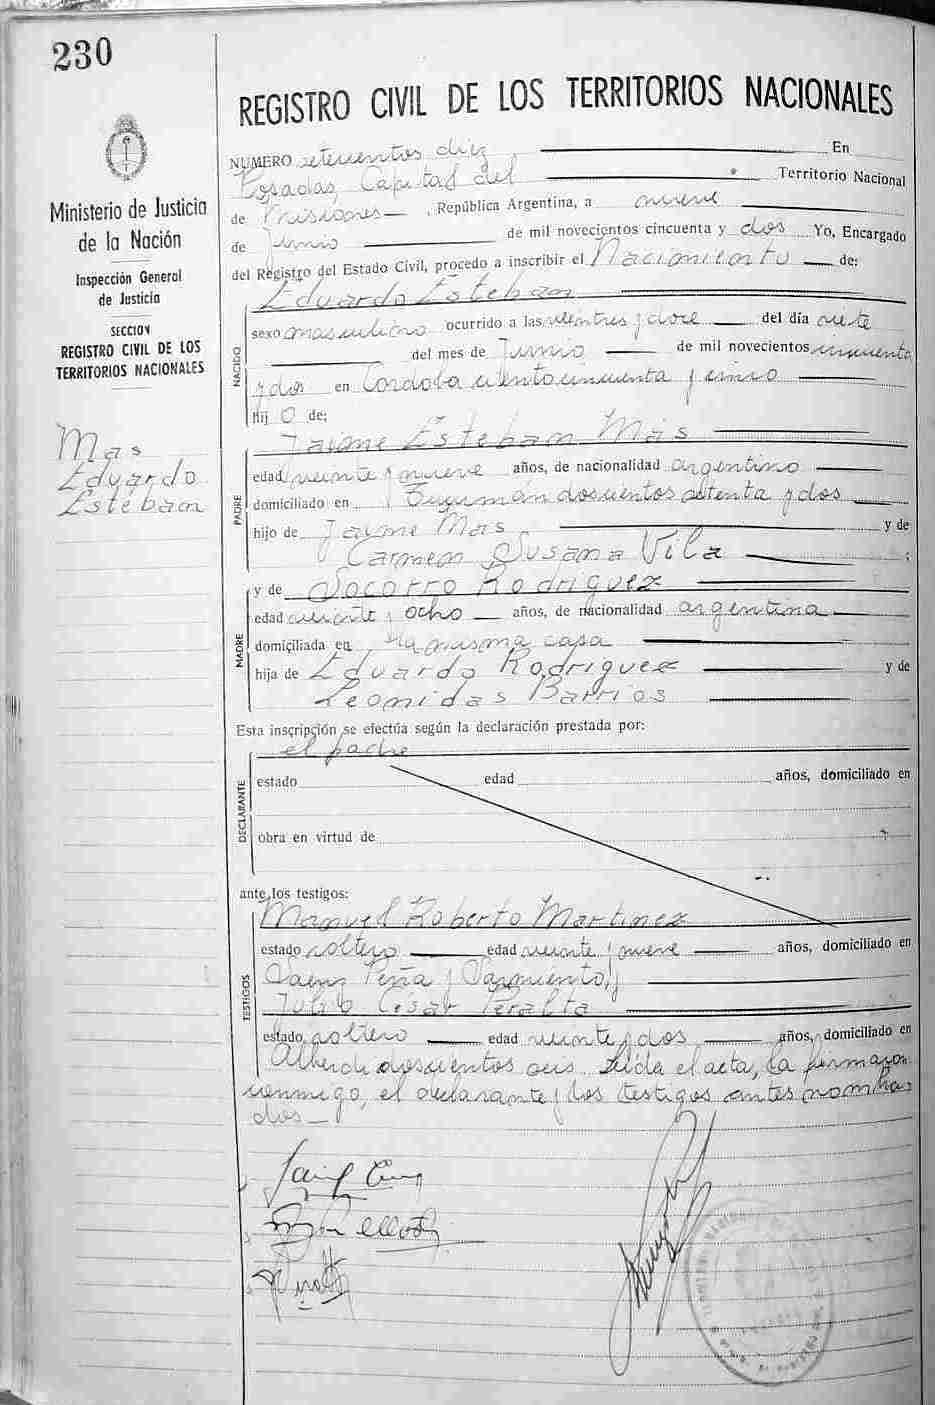 230
REGISTRO CIVIL DE LOS TERRITORIOS NACIONALES
Ministerio de Justicia
de la Nación
Inspección General
de Justicia
SECCION
REGISTRO CIVIL DE LOS
TERRITORIOS NACIONALES
Mas
Eduardo
Esteban
NUMERO setecientos diez En
Posadas, Capital del Territorio Nacional
de Misiones, República Argentina, a nueve
de Junio de mil novecientos cincuenta y dos Yo, Encargado
del Registro del Estado Civil, procedo a inscribir el Nacimiento de:
NACIDO
Eduardo Esteban
sexo masculino ocurrido a las veintres y doce del día siete
del mes de Junio de mil novecientos cincuenta
y dos en Cordoba ciento cincuenta y cinco
Hij o de:
PADRE
Jayme Esteban Mas
edad veinte y nueve años, de nacionalidad argentino
domiciliado en Tucumán doscientos setenta y dos
hijo de Jayme Mas y de
Carmen Susana Vila ;
MADRE
y de Socorro Rodriguez
edad veinte y ocho años, de nacionalidad argentina
domiciliada en la misma casa
hija de Eduardo Rodriguez y de
Leonidas Barrios
Esta inscripción se efectúa según la declaración prestada por:
DECLARANTE
el padre
estado edad años, domiciliado en
obra en virtud de
ante los testigos:
TESTIGOS
Manuel Roberto Martinez
estado soltero edad veinte y nueve años, domiciliado en
Saenz Peña y Sarmiento, y
Julio Cesar Peralta
estado soltero edad veinte y dos años, domiciliado en
Alberdi doscientos seis. Leída el acta, la firmaron
conmigo, el declarante y los testigos antes nombra
dos